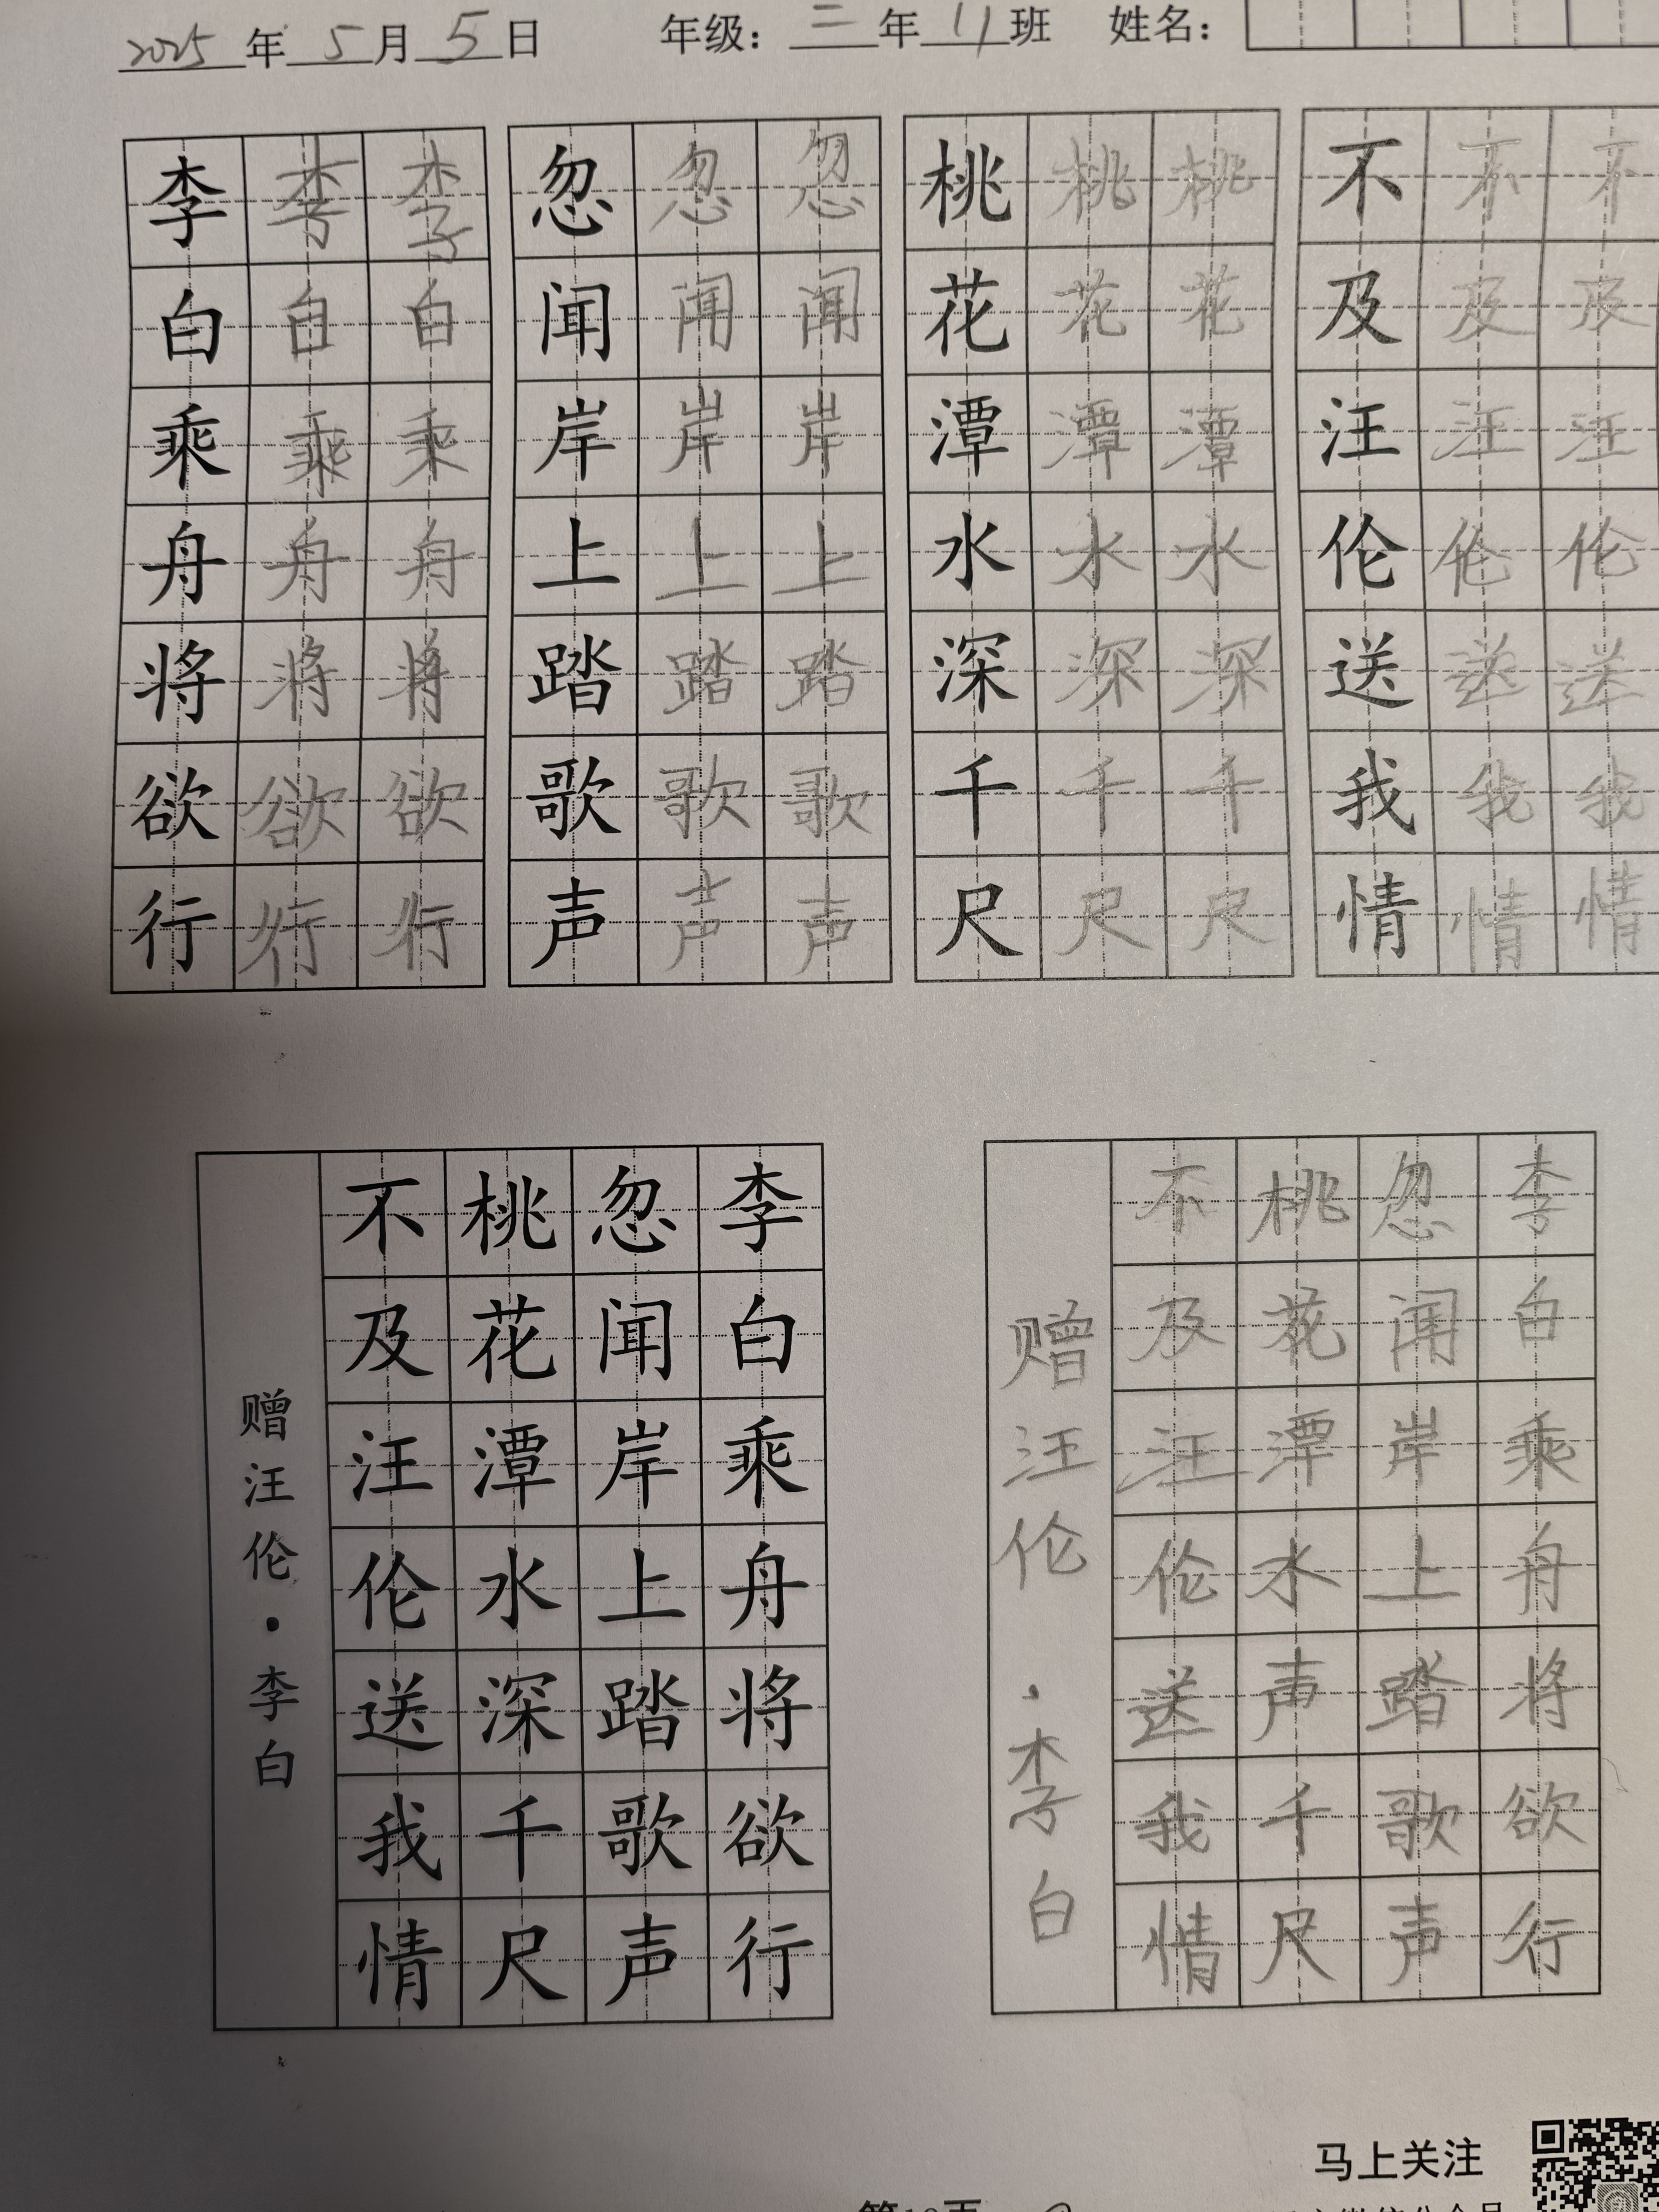 2025年5月5日 年级：三年11班 姓名：
李白乘舟将欲行
李白乘舟将欲行
李白乘舟将欲行
忽闻岸上踏歌声
忽闻岸上踏歌声
忽闻岸上踏歌声
桃花潭水深千尺
桃花潭水深千尺
桃花潭水深千尺
不及汪伦送我情
不及汪伦送我情
不及汪伦送我情
李白乘舟将欲行
忽闻岸上踏歌声
桃花潭水深千尺
不及汪伦送我情
赠汪伦·李白
李白乘舟将欲行
忽闻岸上踏歌声
桃花潭水声千尺
不及汪伦送我情
赠汪伦·李白
马上关注